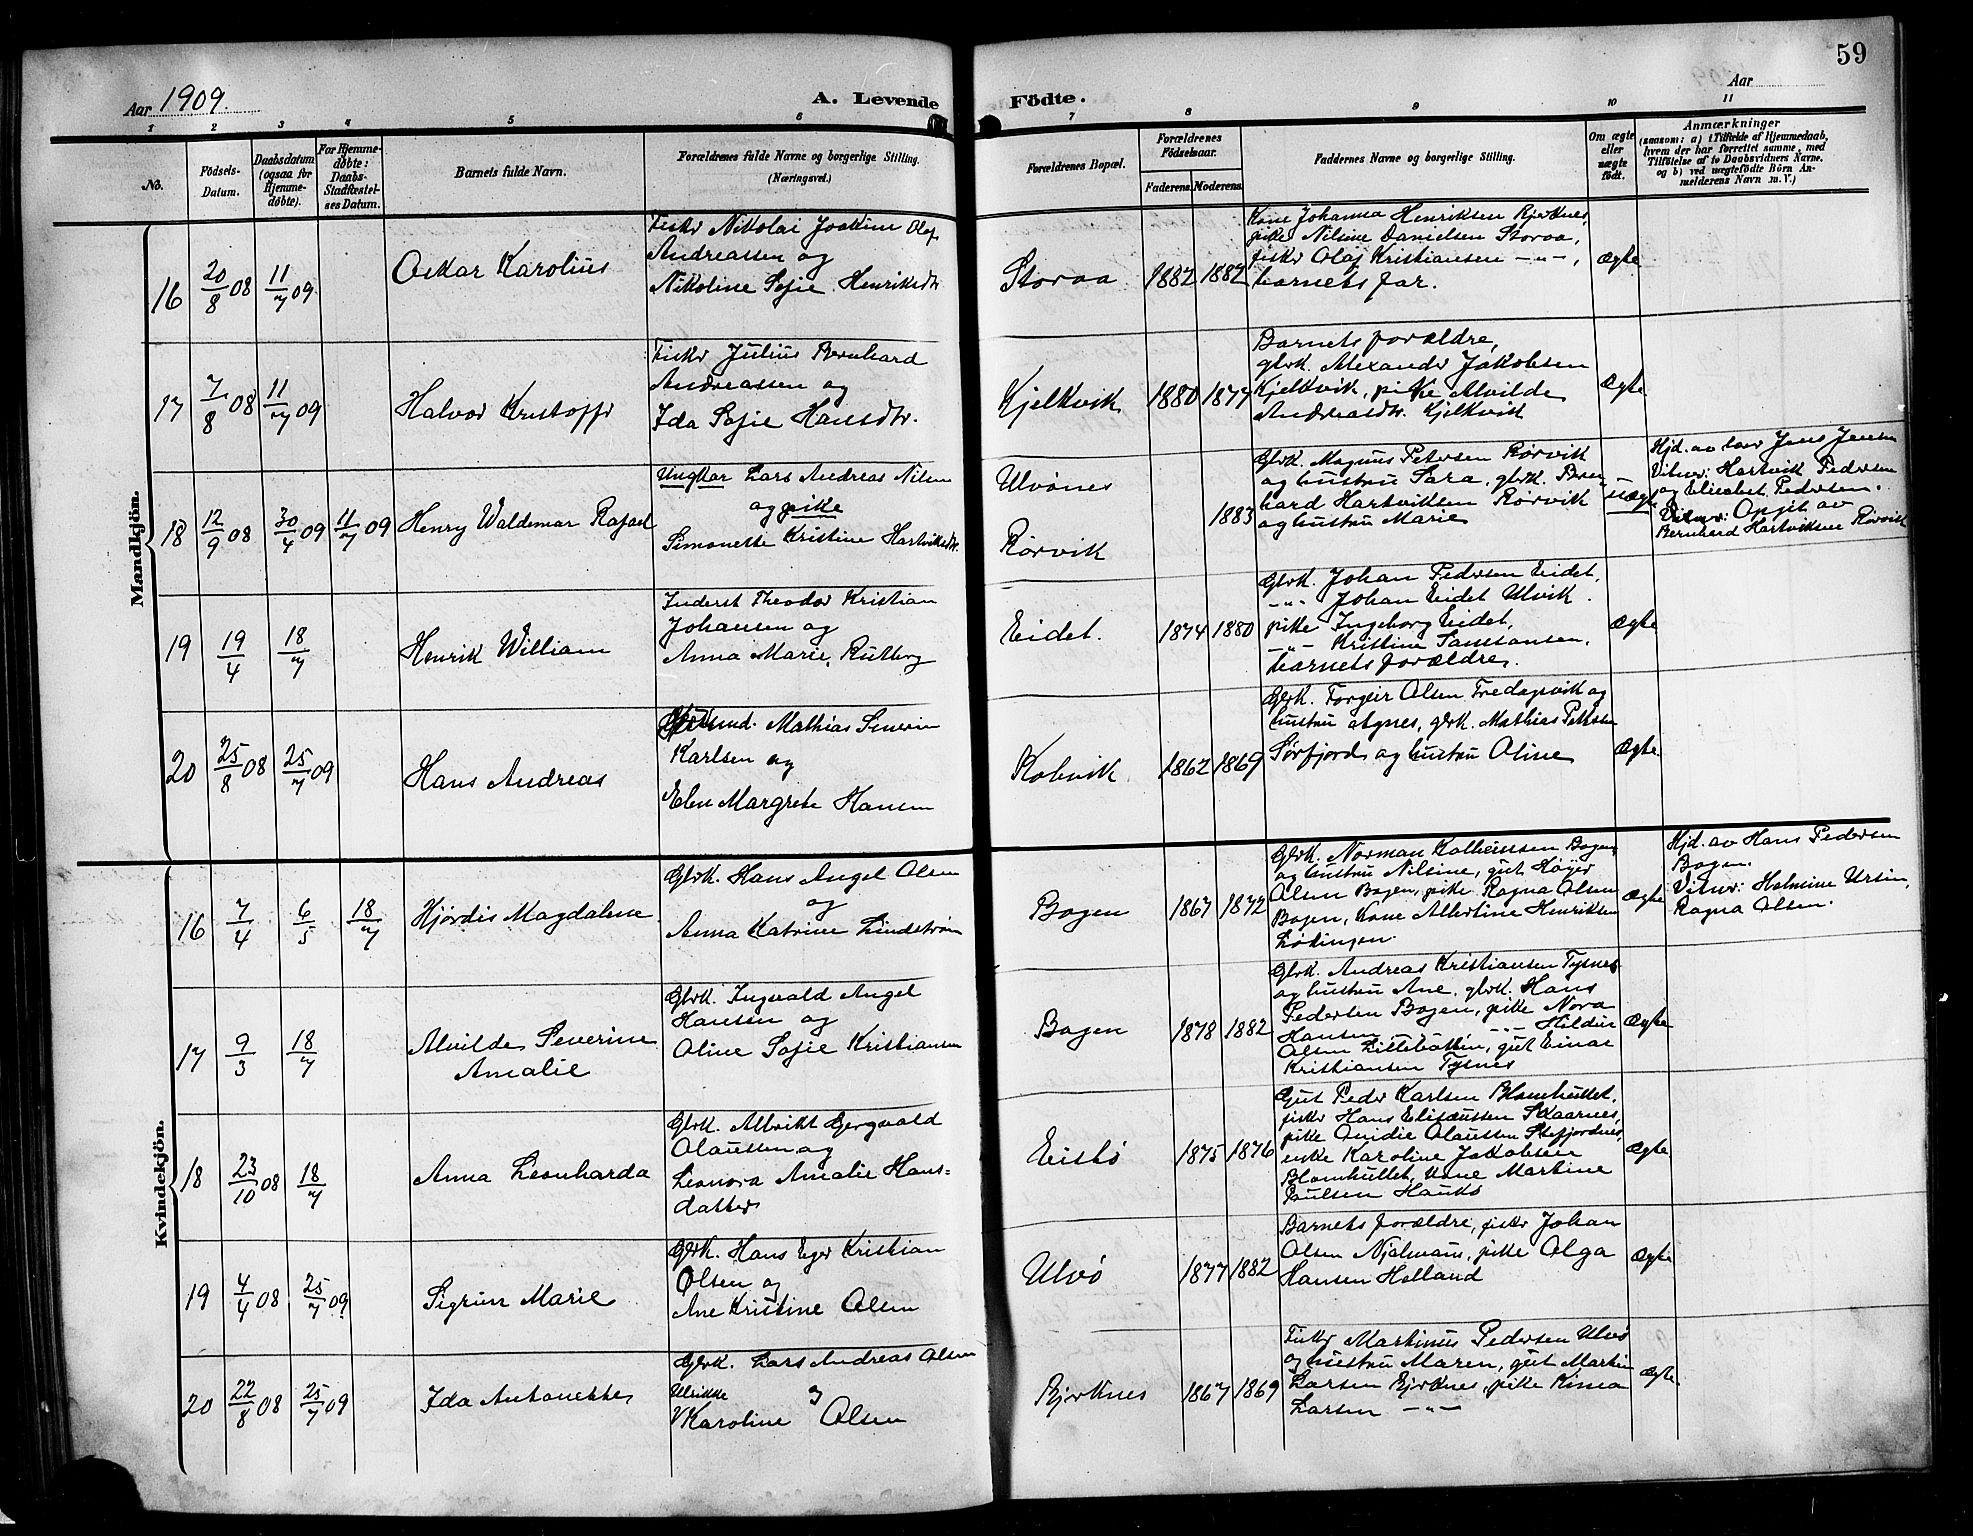 59
Aar 1909.
A. Levende Fødte.
Aar
1 2 3 4 5 6 7 8 9 10 11
No.
Fødsels-Datum.
Daabsdatum (ogsaa for Hjemmedøbte).
For Hjemmedøbte: Daabs-Stadfæstelses Datum.
Barnets fulde Navn.
Forældrenes fulde Navne og borgerlige Stilling.
(Næringsvei.)
Forældrenes Bopæl.
Forældrenes Fødselsaar.
Faderens. Moderens.
Faddernes Navne og borgerlige Stilling.
Om ægte eller uægte født.
Anmærkninger
(saasom: a) i Tilfælde af Hjemmedaab, hvem der har forrettet samme, med Tilføielse af to Daabsvidners Navne, og b) ved uægtefødte Børn Anmelderens Navn m. V.)
Mandkjøn.
16 20/8 08 11/7 09. Oskar Karolius
Fisker Nikolai Joakim Olaf
Andreassen og
Nikoline Sofie Henriksdtr
Storaa 1882 1882
Kone Johanna Henriksen Bjerknes,
pike Nilsine Danielsen Storaa,
fisker Olaf Kristiansen -"-,
barnets far.
Ægte
17 7/8 08 11/7 09 Halvor Kristoffer
Fisker Julius Bernhard
Andreassen og
Ida Sofie Hansdtr.
Kjelkvik 1880 1877
Barnets forældre,
gbrk. Alexander Jakobsen
Kjelkvik, pike Alvilde
Andreasdtr. Kjelkvik
Ægte
18 12/9 08 30/4 09 11/7 09 Henry Waldemar Rafael
Ungkar Lars Andreas Nilsen
og pike
Simonette Kristine Hartviksdtr.
Ulvønes
Rørvik
1883
Gbrk. Magnus Petersen Rørvik
og hustru Sara, gbrk. Bern
hard Hartviksen Rørvik
og hustru Marie
uægte
Hjd. av Jens Jensen
Vitner: Hartvik Pedersen
og Elisabet Pedersen.
Opgit av
Bernhard Hartviksen Rørvik
19 19/4 18/7 Henrik William
Inderst Theodor Kristian
Johansen og
Anna Marie Rutberg
Eidet. 1874 1880
Gbrk. Johan Pedersen Eidet,
-"- Johan Eidet Ulvik.
pike Ingeborg Eidet,
-"- Kristine Samsonsen,
barnets forældre.
Ægte
20 25/8 08 25/7 09 Hans Andreas
Mathias Severin
Karlsen og
Elen Margrete Hansen
Kobvik 1862 1869
Gbrk. Torgeir Olsen Fredagsvik og
hustru Agnes, gbrk. Mathias Petersen
Sørfjord og hustru Oline
Ægte.
Kvindekjøn.
16 7/4 6/5 18/7 Hjørdis Magdalene
Gbrk. Hans Angel Olsen
og
Anna Katrine Lindstrøm
Bogen 1867 1872
Gbrk. Norman Bogen
og hustru Nilsine, gut Høyer
Olsen Bogen, pike Ragna Olsen
Bogen, kone Albertine Henriksen
Lødingen.
Ægte
Hjd. av Hans Pedersen
Bogen.
Vitner: Helmine Ursin,
Ragna Olsen.
17 9/3 18/7 Alvilde Severine
Amalie
Gbrk. Ingvald Angel
Hansen og
Oline Sofie Kristiansen
Bogen 1878 1882
Gbrk. Andreas Kristiansen Tysnes
og hustru Ane, gbrk. Hans
Pedersen Bogen, pike Nora
Hansen -"- Hildur
Olsen Lillebotten, gut Einar
Kristiansen Tysnes
Ægte
18 23/10 08 18/7 Anna Leonharda
Gbrk. Albrikt
Olaussen og
Leonora Amalie Hans-
datter
Eistø 1875 1876
Gut Peder Karlsen Blomhullet,
fisker Hans Eliseussen Skaarnes,
pike Olaussen Stefjordnes,
enke Karoline Jakobsen
Blomhullet, kone Martine
Paulsen Haukø
Ægte
19 4/4 08 25/7 09. Sigrun Marie
Gbrk. Hans Eger Kristian
Olsen og
Ane Kristine Olsen
Ulvø 1877 1882
Barnets forældre, fisker Johan
Olsen, pike Olga
Hansen Helland
Ægte
20 22/8 08 25/7 09 Ida Antonette
Gbrk. Lars Andreas Olsen
Ulrikke og
Karoline Olsen
Bjerknes 1867 1869
Fisker Martinus Pedersen Ulvø
og hustru Maren, gut Martin
Larsen Bjerknes, pike
Larsen -"-
Ægte.